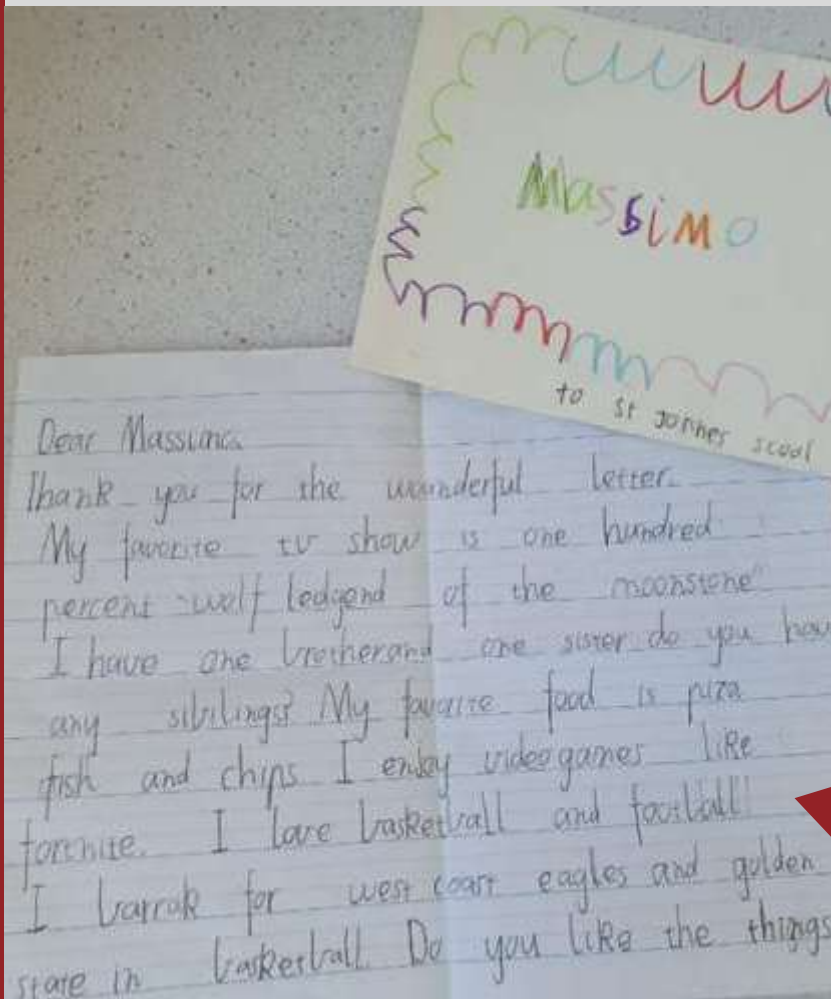 Massimo
to st jonhes scool
Dear Massimo
Thank you for the wounderful letter.
My favorite tv show is one hundred
percent wolf ledgend of the moonstone"
I have one brotherand one sister do you hav
any sibilings? My favorite food is piza
fish and chips I enjoy videogames like
fortnite. I love basketball and football!
I barrak for west coast eagles and golden
state in basketball. Do you like the things